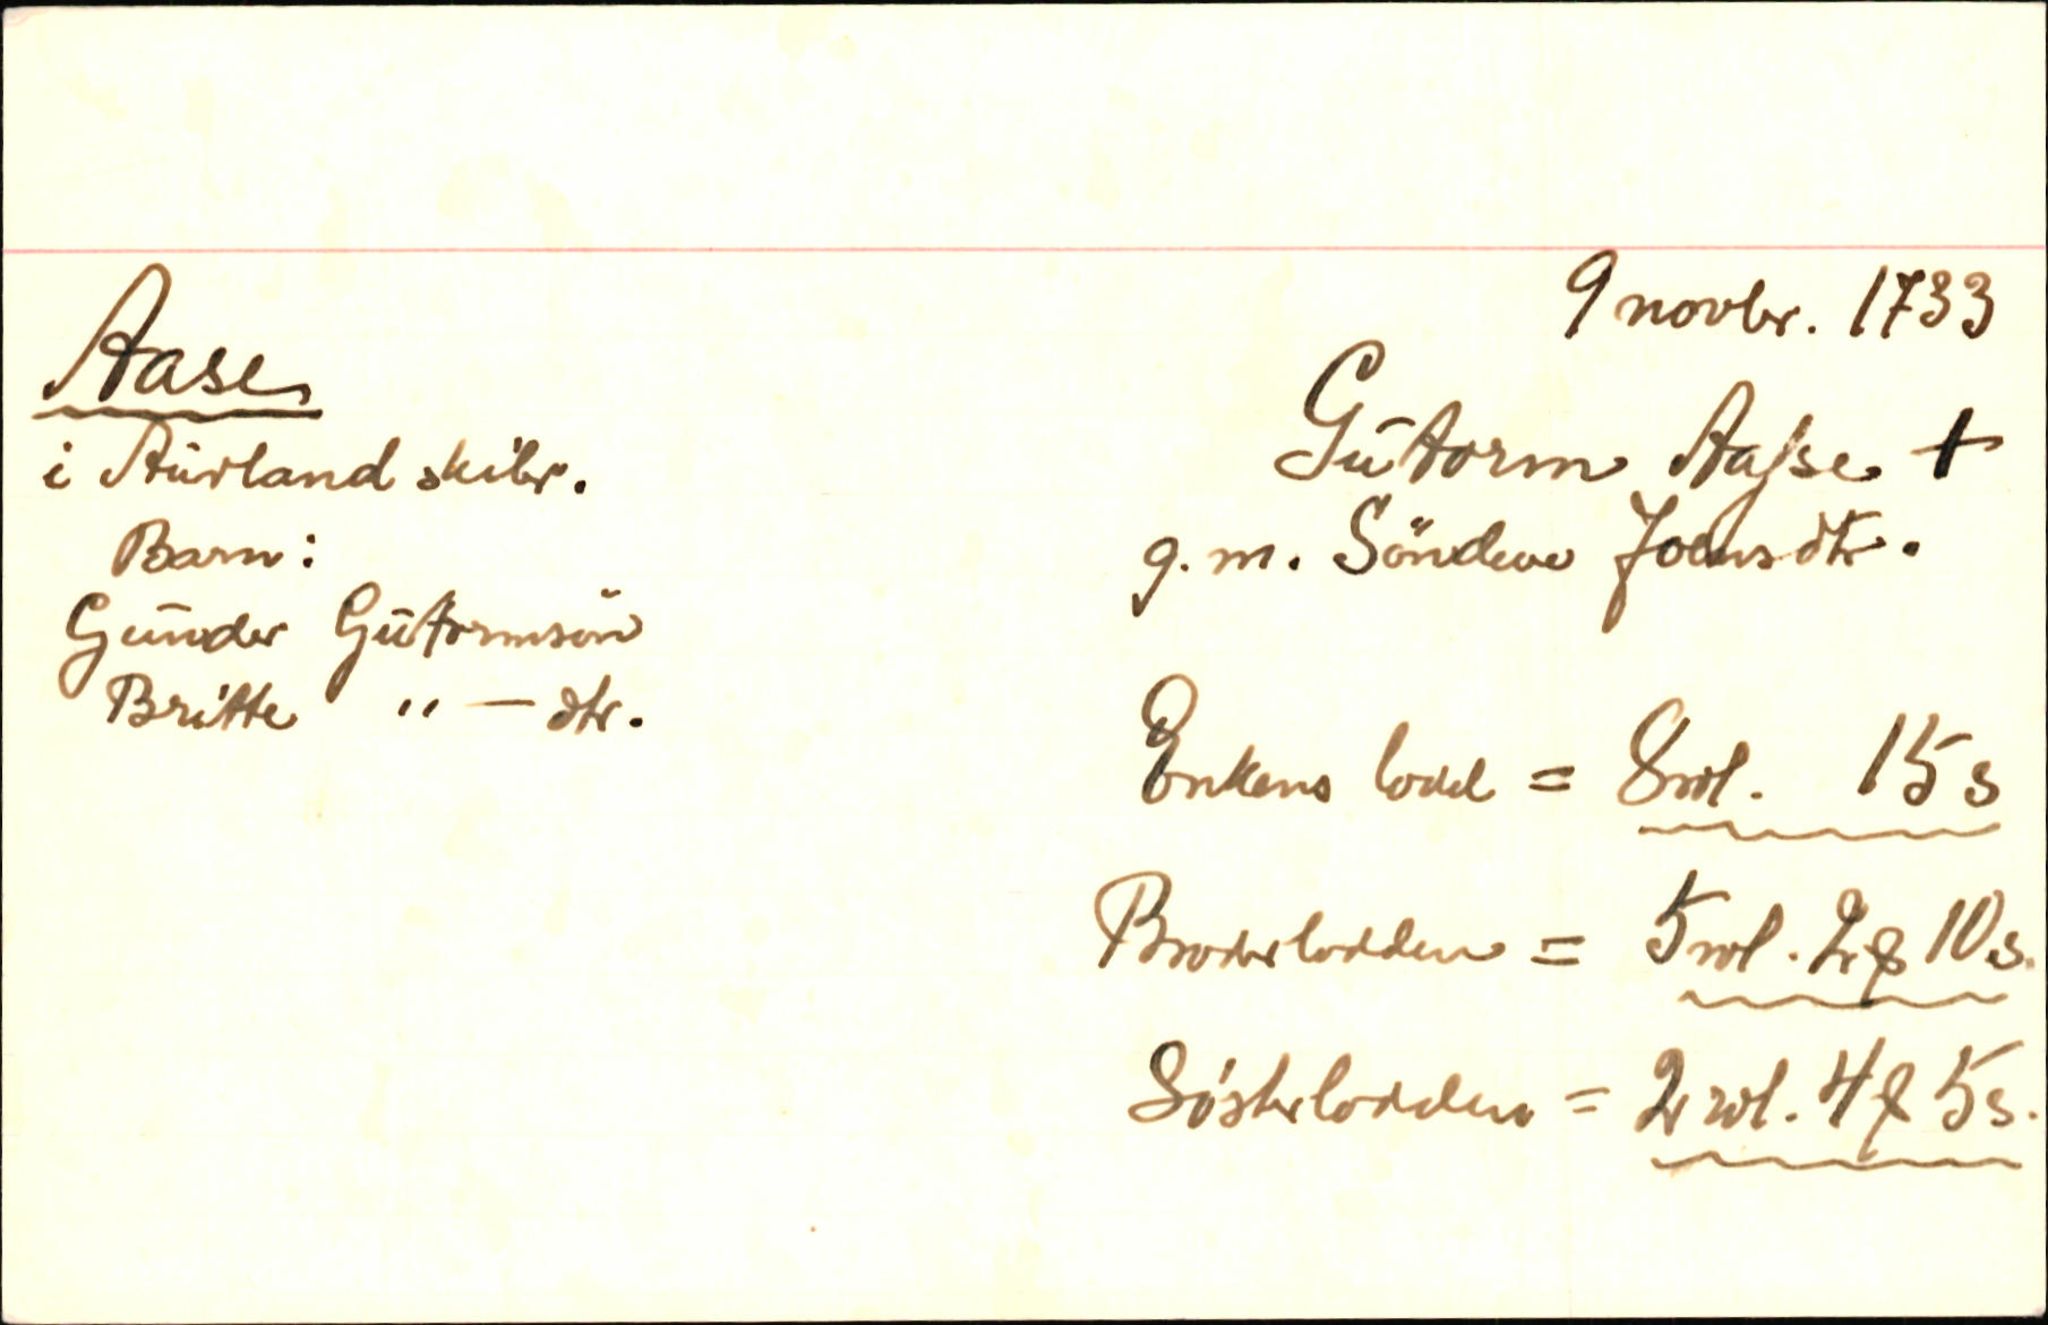 9 novbr. 1733
Aase
i Aurland skibr.
Barn:
Gunder Gutormsön
Britte " — dtr.
Gutorm Aasse +
g. m. Söndeve Joensdtr.
Enkens lodd = 8 rdl. 15 s
Broderlodden = 5 rdl. 2 ℔ 10 s.
Sösterlodden = 2 rdl. 4 ℔ 5 s.